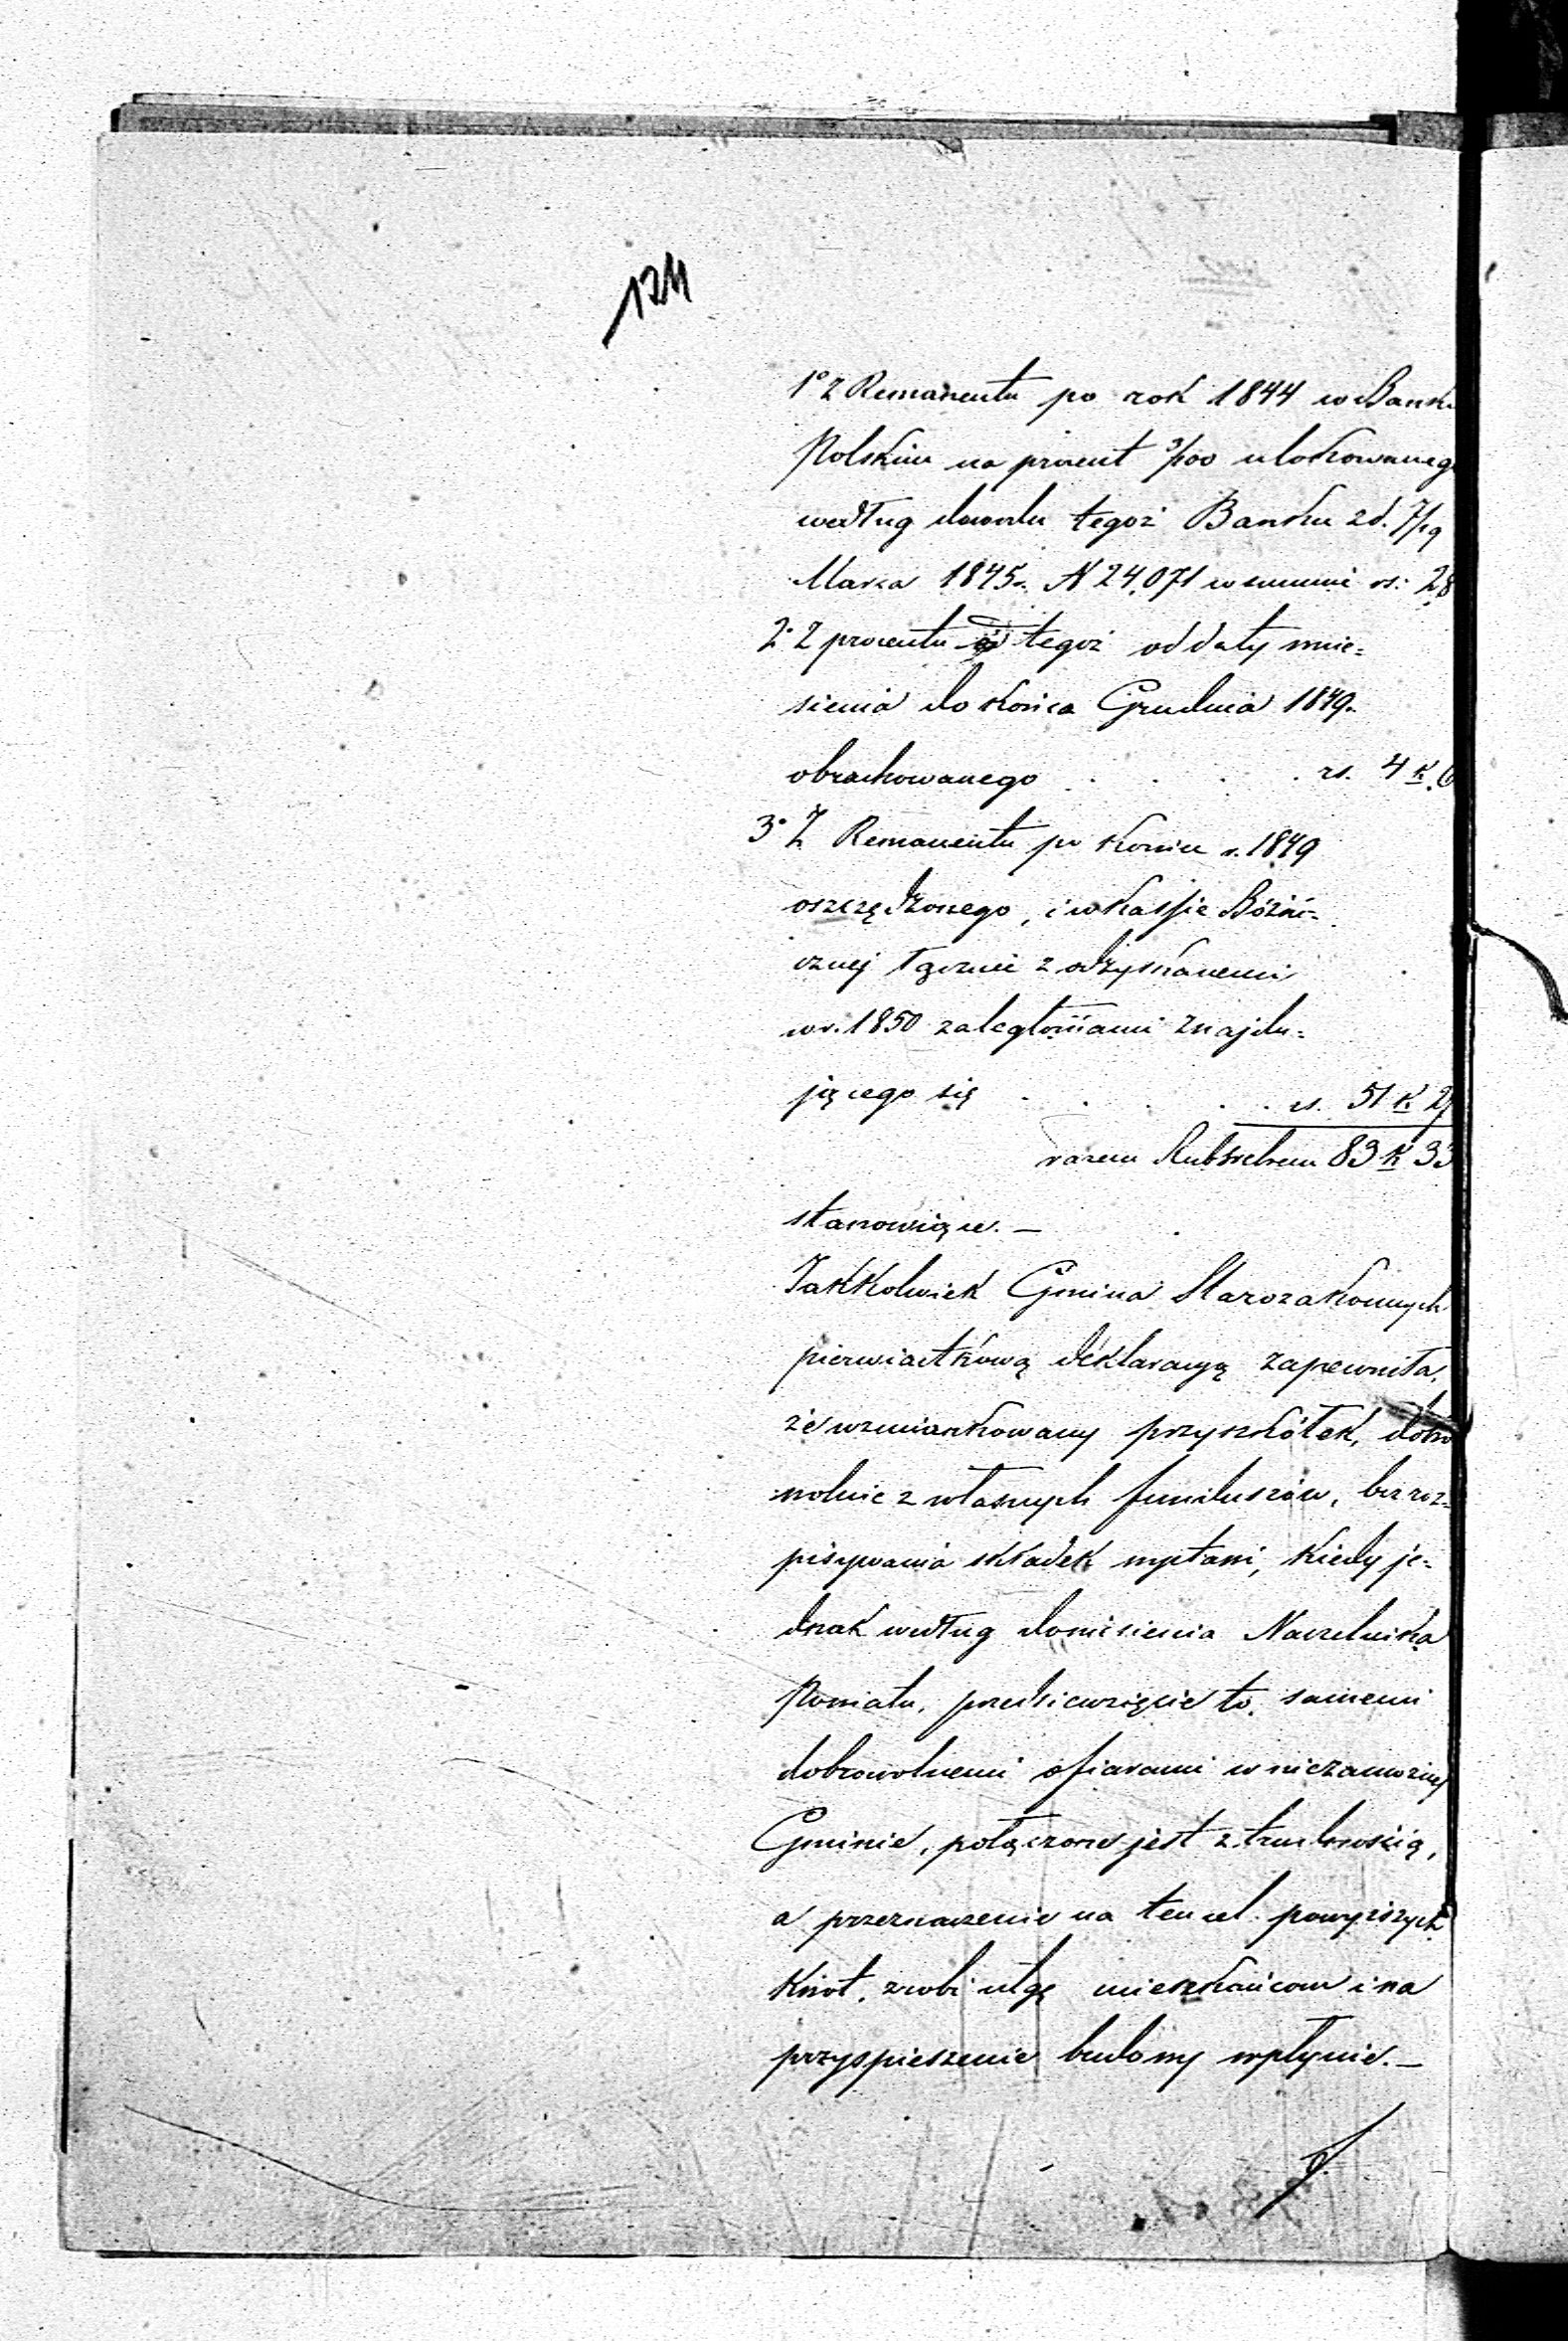 124
1° z Remanentu po rok 1844 w Banku
Polskim na procent 3/100 ulokowanego
według dowodu tegoż Banku z d. 7/19
Marca 1845 r. N 24,071 w summie rs: 28
2° Z procentu tegoż od daty wnie-
sienia do końca Grudnia 1849 r.
obrachowanego . . . . rs. 4 k. 6
3° Z Remanentu po koniec r. 1849
oszczędzonego, i w kassie Bóżni-
cznej łącznie z odzyskanemi
w r. 1850 zaległościami znajdu-
jącego się . . . . . rs. 51 k. 27
razem Rubsrebrem 83 k 33
stanowiące. —
Jakkolwiek Gmina Starozakonnych
pierwiastkową deklaracyą zapewniła,
że wzmiankowany przyszkółek, dobro
wolnie z własnych funduszów, bez roz-
pisywania składek wystawi, kiedy je-
dnak według doniesienia Naczelnika
Powiatu, przedsięwzięcie to, samemi
dobrowolnemi ofiarami w niezamożnej
Gminie, połączone jest z trudnością,
a przeznaczenie na ten cel powyższych
kwot, zrobi ulgę mieszkańcom i na
przyspieszenie budowy wpłynie. —